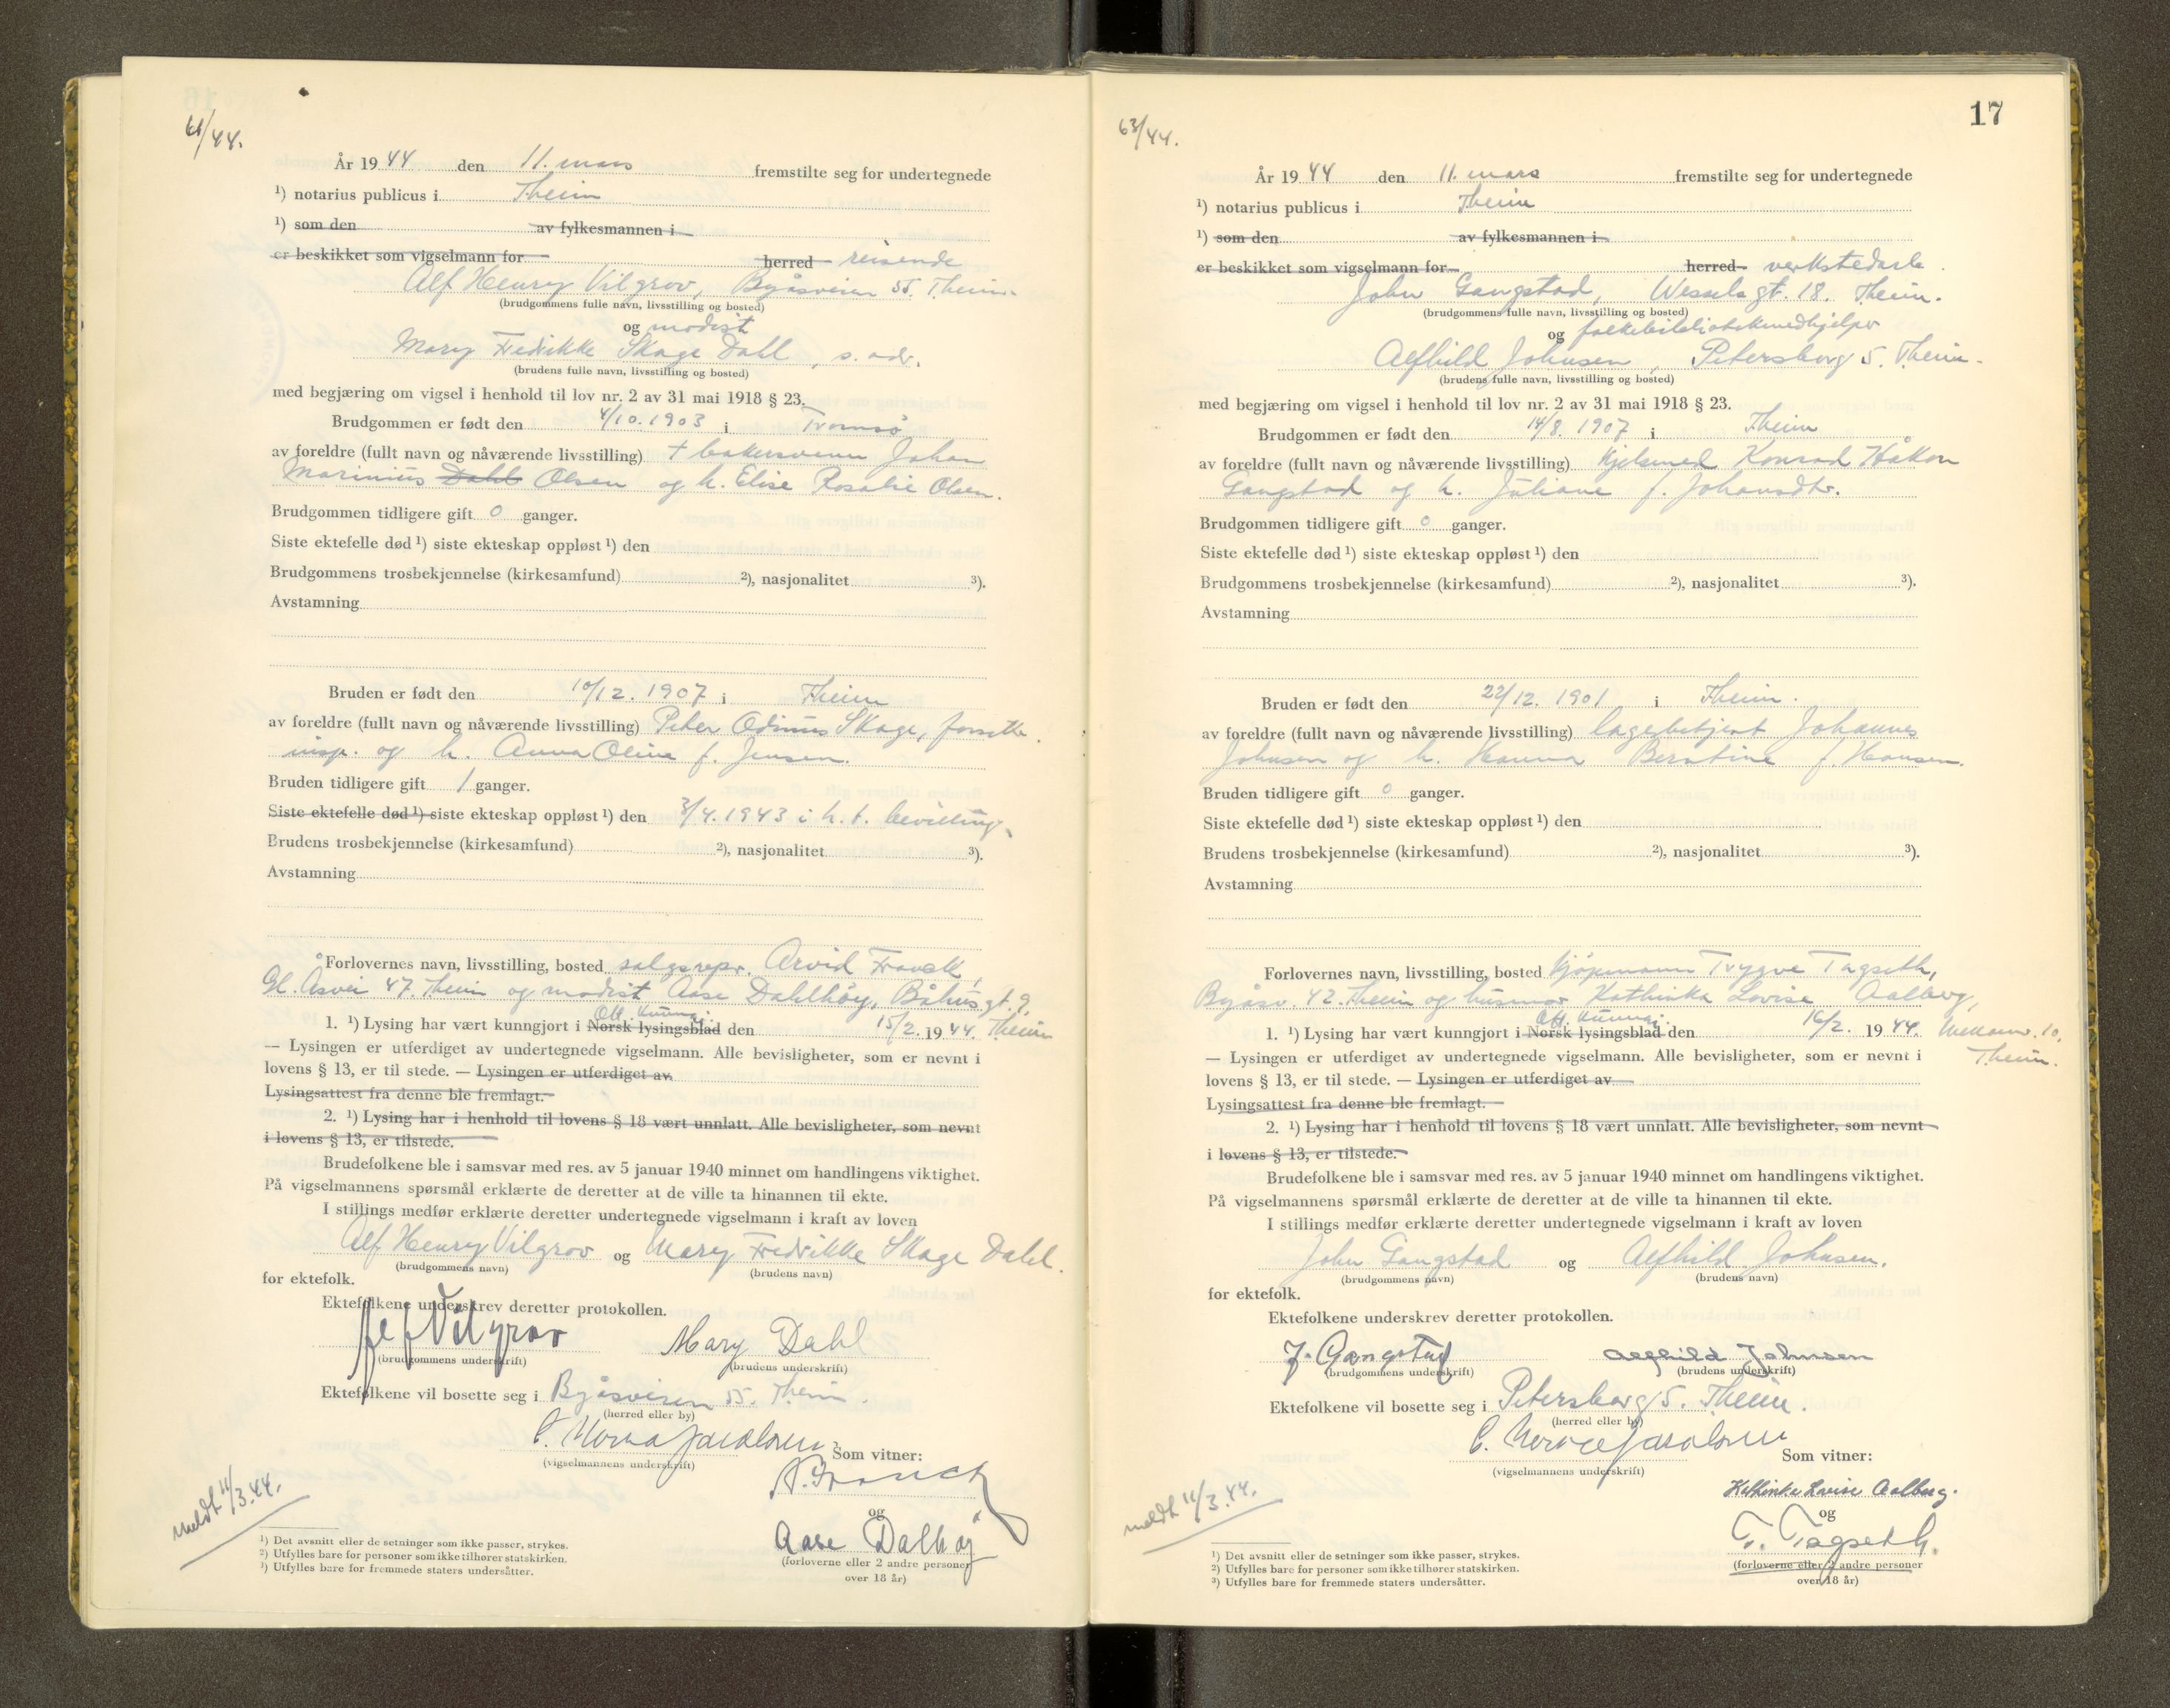 61/44.
År 19 44 den 11. mars fremstilte seg for undertegnede
¹) notarius publicus i Theim
¹) som den av fylkesmannen i
er beskikket som vigselmann for herred reisende
Alf Henry Vilgrov, Byåsveien 55. Theim.
(brudgommens fulle navn, livsstilling og bosted)
og modist
Mary Fredrikke Skage Dahl, s. adr.
(brudens fulle navn, livsstilling og bosted)
med begjæring om vigsel i henhold til lov nr. 2 av 31 mai 1918 § 23.
Brudgommen er født den 4/10. 1903 i Tromsø
av foreldre (fullt navn og nåværende livsstilling) † bakersvenn Johan
Marinius Dahl Olsen og h. Elise Rosalie Olsen.
Brudgommen tidligere gift 0 ganger.
Siste ektefelle død ¹) siste ekteskap oppløst ¹) den
Brudgommens trosbekjennelse (kirkesamfund) ²), nasjonalitet ³).
Avstamning
Bruden er født den 10/12. 1907 i Theim
av foreldre (fullt navn og nåværende livsstilling) Peter Odinus Skage,
insp. og h. Anna Oline f. Jensen.
Bruden tidligere gift 1 ganger.
Siste ektefelle død ¹) siste ekteskap oppløst ¹) den 3/4. 1943 i h. t. bevilling.
Brudens trosbekjennelse (kirkesamfund) ²), nasjonalitet ³).
Avstamning
Forlovernes navn, livsstilling, bosted salgsrepr. Arvid Franck,
Gl. Åsvei 47. Theim og modist Aase Dahlhöy, Båhus gt. 9.
Off. kunngj.
1. ¹) Lysing har vært kunngjort i Norsk lysingsblad den 15/2. 19 44. Theim
— Lysingen er utferdiget av undertegnede vigselmann. Alle bevisligheter, som er nevnt i
lovens § 13, er til stede. — Lysingen er utferdiget av
Lysingsattest fra denne ble fremlagt.
2. ¹) Lysing har i henhold til lovens § 18 vært unnlatt. Alle bevisligheter, som nevnt
i lovens § 13, er tilstede.
Brudefolkene ble i samsvar med res. av 5 januar 1940 minnet om handlingens viktighet.
På vigselmannens spørsmål erklærte de deretter at de ville ta hinannen til ekte.
I stillings medfør erklærte deretter undertegnede vigselmann i kraft av loven
Alf Henry Vilgrov og Mary Fredrikke Skage Dahl.
(brudgommens navn) (brudens navn)
for ektefolk.
Ektefolkene underskrev deretter protokollen.
Alf Vilgrov Mary Dahl
(brudgommens underskrift) (brudens underskrift)
Ektefolkene vil bosette seg i Byåsveien 55. Theim.
(herred eller by)
Som vitner:
(vigselmannens underskrift)
A. Franck
og
Aase Dalhöj
(forloverne eller 2 andre personer
over 18 år)
meldt 11/3.44.
¹) Det avsnitt eller de setninger som ikke passer, strykes.
²) Utfylles bare for personer som ikke tilhører statskirken.
³) Utfylles bare for fremmede staters undersåtter.
17
63/44.
År 19 44 den 11. mars fremstilte seg for undertegnede
¹) notarius publicus i Theim
¹) som den av fylkesmannen i
er beskikket som vigselmann for herred verkstedarb.
John Gangstad, Wessels gt. 18. Theim.
(brudgommens fulle navn, livsstilling og bosted)
og folkebibliotekmedhjelper
Alfhild Johnsen, Petersborg 5. Theim.
(brudens fulle navn, livsstilling og bosted)
med begjæring om vigsel i henhold til lov nr. 2 av 31 mai 1918 § 23.
Brudgommen er født den 14/8. 1907 i Theim
av foreldre (fullt navn og nåværende livsstilling) Konrad Håkon
Gangstad og h. Juliane f. Johansdtr.
Brudgommen tidligere gift 0 ganger.
Siste ektefelle død ¹) siste ekteskap oppløst ¹) den
Brudgommens trosbekjennelse (kirkesamfund) ²), nasjonalitet ³).
Avstamning
Bruden er født den 22/12. 1901 i Theim.
av foreldre (fullt navn og nåværende livsstilling) lagerbetjent Johannes
Johnsen og h. Hanna Berntine f. Hansen.
Bruden tidligere gift 0 ganger.
Siste ektefelle død ¹) siste ekteskap oppløst ¹) den
Brudens trosbekjennelse (kirkesamfund) ²), nasjonalitet ³).
Avstamning
Forlovernes navn, livsstilling, bosted kjøpmann Trygve Tagseth,
Byåsv. 42. Theim og husmor Kathinka Lovise Aalberg,
Off. kunngj.
1. ¹) Lysing har vært kunngjort i Norsk lysingsblad den 16/2. 19 44. 10.
Theim.
— Lysingen er utferdiget av undertegnede vigselmann. Alle bevisligheter, som er nevnt i
lovens § 13, er til stede. — Lysingen er utferdiget av
Lysingsattest fra denne ble fremlagt.
2. ¹) Lysing har i henhold til lovens § 18 vært unnlatt. Alle bevisligheter, som nevnt
i lovens § 13, er tilstede.
Brudefolkene ble i samsvar med res. av 5 januar 1940 minnet om handlingens viktighet.
På vigselmannens spørsmål erklærte de deretter at de ville ta hinannen til ekte.
I stillings medfør erklærte deretter undertegnede vigselmann i kraft av loven
John Gangstad og Alfhild Johnsen.
(brudgommens navn) (brudens navn)
for ektefolk.
Ektefolkene underskrev deretter protokollen.
J. Gangstad Alfhild Johnsen
(brudgommens underskrift) (brudens underskrift)
Ektefolkene vil bosette seg i Petersborg 5. Theim.
(herred eller by)
Som vitner:
(vigselmannens underskrift)
Kathinka Lovise Aalberg.
og
T. Tagseth.
(forloverne eller 2 andre personer
over 18 år)
meldt 11/3.44.
¹) Det avsnitt eller de setninger som ikke passer, strykes.
²) Utfylles bare for personer som ikke tilhører statskirken.
³) Utfylles bare for fremmede staters undersåtter.